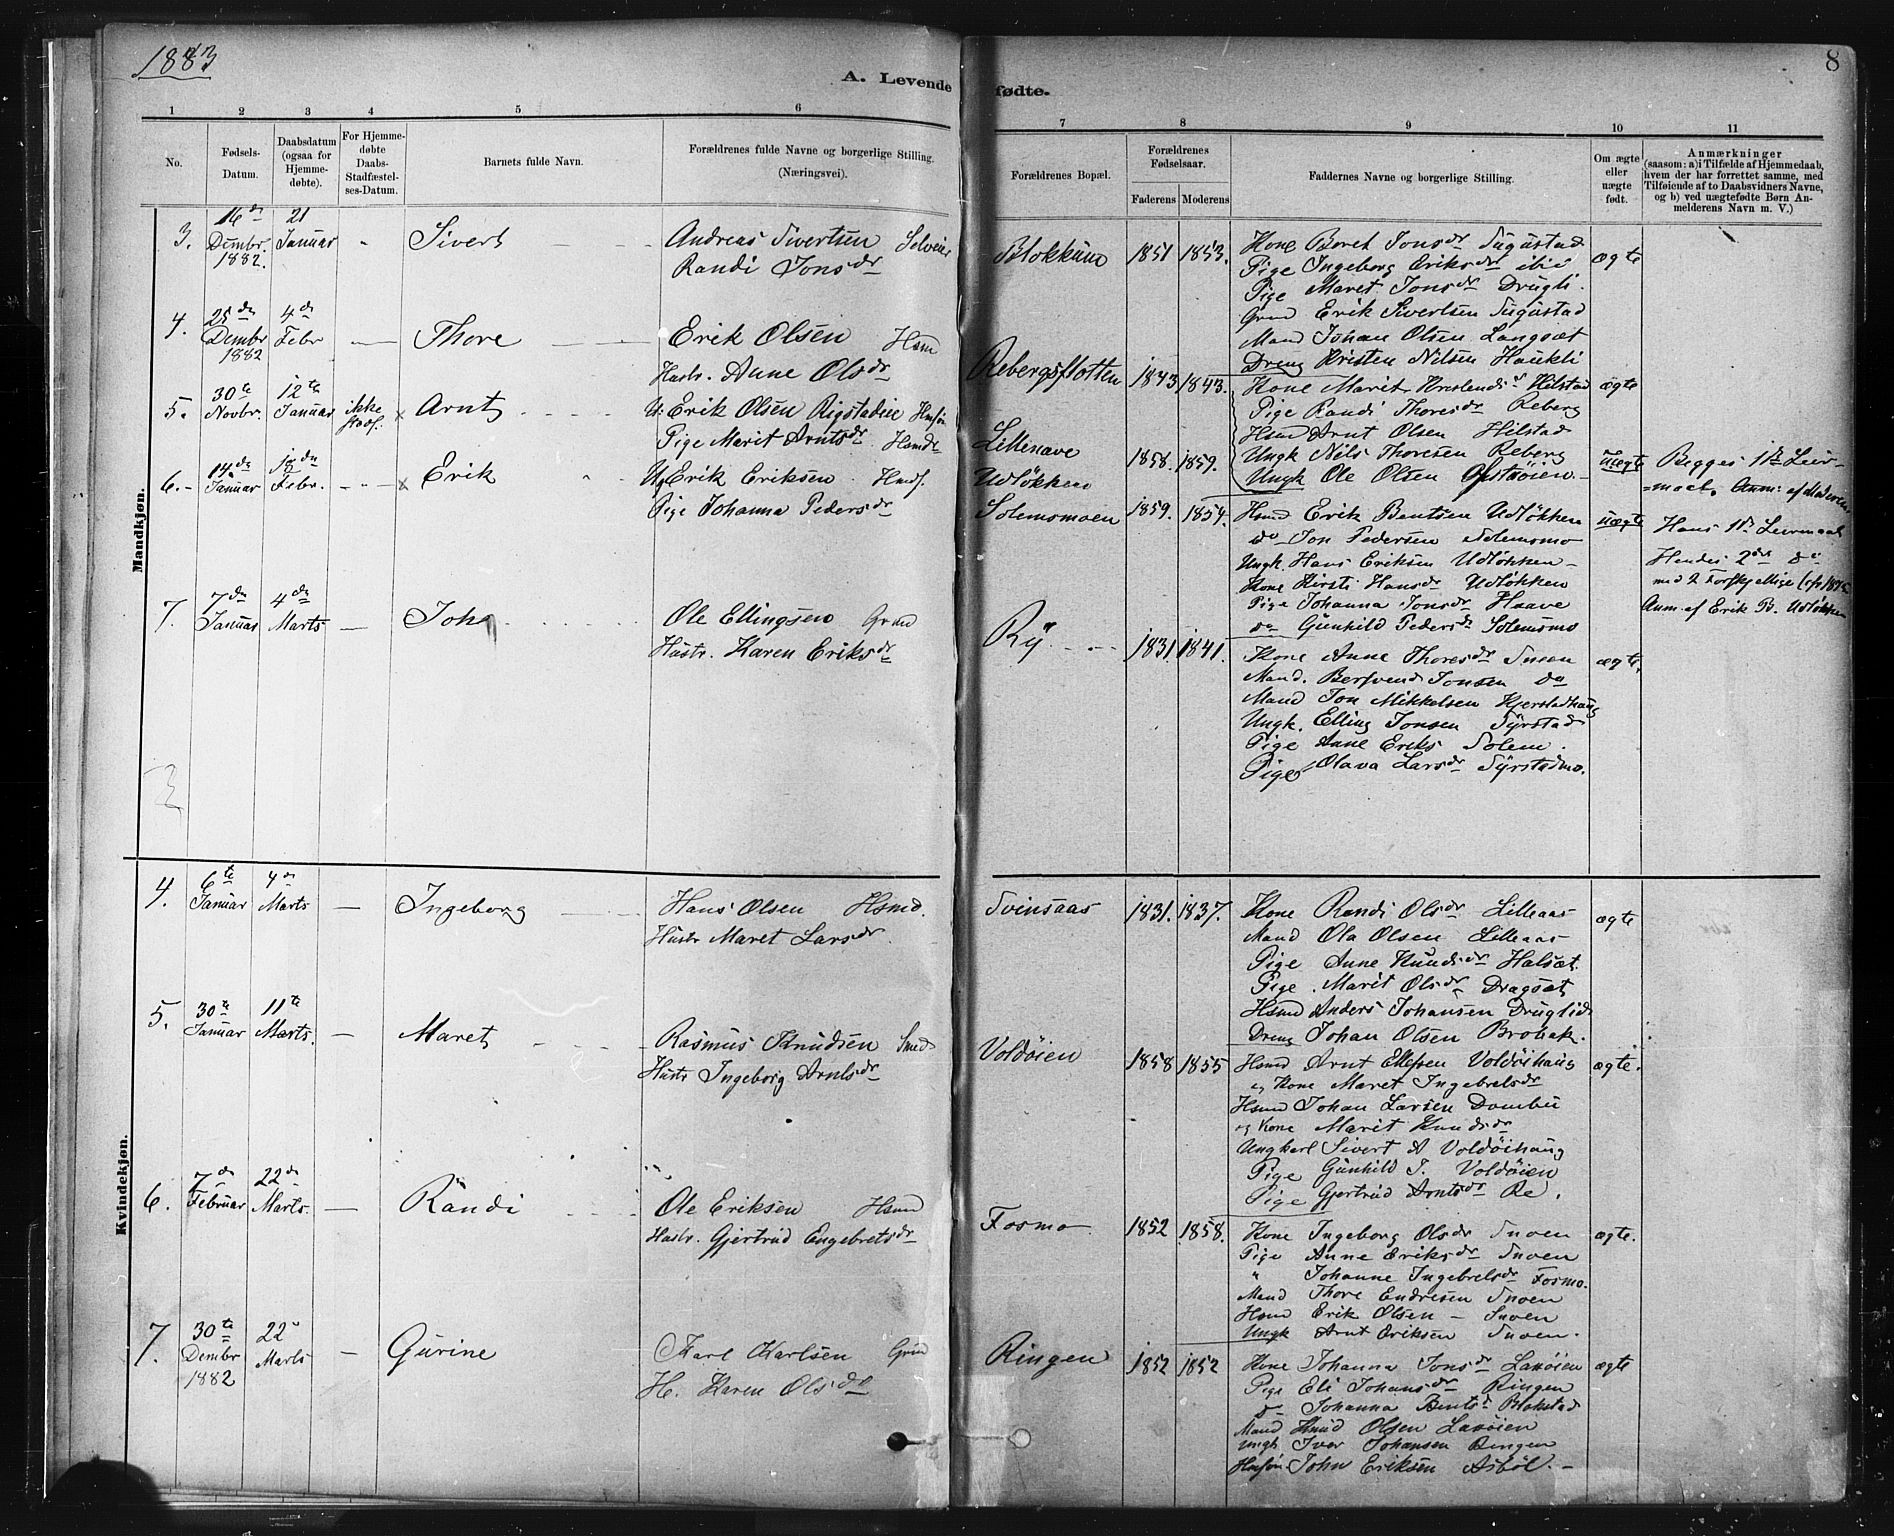 1883
8
A. Levende
fødte.
1 2 3 4 5 6
7 8 9 10 11
No.
Fødsels-
Datum.
Daabsdatum
(ogsaa for
Hjemme-
døbte).
For Hjemme-
døbte
Daabs-
Stadfæstel-
ses-Datum.
Barnets fulde Navn.
Forældrenes fulde Navne og borgerlige Stilling.
(Næringsvei).
Forældrenes Bopæl.
Forældrenes
Fødselsaar.
Faderens Moderens
Faddernes Navne og borgerlige Stilling.
Om ægte
eller
uægte
født.
Anmærkninger
(saasom: a) i Tilfælde af Hjemmedaab,
hvem der har forrettet samme, med
Tilføiende af to Daabsvidners Navne,
og b) ved uægtefødte Børn An-
melderens Navn m. V.)
Mandkjøn.
3.
16de
Dembr.
1882.
21
Januar
Sivert
Andreas Sivertsen
Randi Jonsdr
Blokkum
1851 1853.
Kone Boret Jonsdr Sugustad
Pige Ingeborg Eriksdr ibid
Pige Maret Jonsdr Drugli.
Grmd Erik Sivertsen Sugustad
Mand Johan Olsen Langsæt
Dreng Kristen Nilsen Haukli
ægte
4.
25de
Dembr
1882
4de
Febr
Thore
Erik Olsen Hsm
Hustr. Anne Olsdr
Rebergsflotten
1843 1843.
Kone Marit Hilstad
Pige Randi Thoresdr Reberg
Hsmd Arnt Olsen Hilstad
Ungk Nils Thoresen Reberg
Ungk Ole Olsen
ægte
5.
30te
Novbr.
12te
Januar
ikke
stadf.
x Arnt
U. Erik Olsen Rigstadeie
Pige Marit Arntsdr. Hsmdt
Lillenave
1858. 1859.
uægte
Begges 1ste Leier-
=maal. Anm: af Moderen
6.
14de
Januar
18de
Febr.
x Erik
Ug Erik Eriksen
Pige Johanna Pedersdr
Udløkken
Solemsmoen
1859. 1854.
Hsmd Erik Bentsen Udløkken
do Jon Pedersen Solemsmo
Ungk. Hans Eriksen Udløkken
Kone Kirsti Hansdr Udløkken
Pige Johanna Jonsdr Haave
do Gunhild Pedersdr Solemsmo
uægte
Hans 1ste Leiermaal
Hendes 2det do
med 2 Forskjellige
Anm. af Erik B. Udløkken
7.
7de
Januar
4de
Marts
John
Ole Ellingsen Grmd
Hustr. Karen Eriksdr
Ry
1831 1841.
Kone Anne Thoresdr Snoen
Mand. Bersvend Jonsen do
Mand Jon Mikkelsen Kjerstadhaug
Ungk. Elling Jonsen Syrstad
Pige Anne Eriks Solem.
Pige Olava Larsdr Syrstadmo.
ægte.
Kvindekjøn.
4.
6te
Januar
4de
Marts
Ingeborg
Hans Olsen Hsmd.
Hustr Maret Larsdr.
Svinsaas
1831. 1837.
Kone Randi Olsdr Lilleaas
Mand Ola Olsen Lilleaas
Pige Anne Knudsdr Halsæt.
Pige. Marit Olsdr Dragsæt
Hsmd Anders Johansen Druglid
Dreng Johan Olsen Brobak.
ægte
5.
30te
Januar
11te
Marts.
Maret
Rasmus Knudsen Smed
Hustr Ingeborg Arntsdr
Voldøien
1858 1855
Hsmd Arnt Ellefsen Voldøihaug
og Kone Maret Ingebretsdr
Hsmd Johan Larsen Dombu
og Kone Marit Knudsdr
Ungkarl Sivert A Voldøihaug
Pige Gunhild J. Voldøien
Pige Gjertrud Arntsdr Re.
ægte.
6.
7de
Februar
22de
Marts.
Randi
Ole Eriksen Hsmd
Hustr. Gjertrud Engebretsdr
Fosmo
1852 1858.
Kone Ingeborg Olsdr Snoen
Pige Anne Eriksdr Snoen
" Johanne Ingebretsdr Fosmo.
Mand Thore Endresen Snoen
Hsmd Erik Olsen – Snoen
Ungk Arnt Eriksen Snoen.
ægte.
7.
30te
Dembr
1882
22
Marts
Gurine
Karl Karlsen Grmd
H. Karen Olsdr
Ringen
1852 1852
Kone Johanna Jonsdr Laxøien
Pige Eli Johansdr Ringen
do Johanna Bentsd Blokstad
Mand Knud Olsen Laxøien
Ungk Iver Johansen Ringen
John Eriksen Asbøl.
ægte